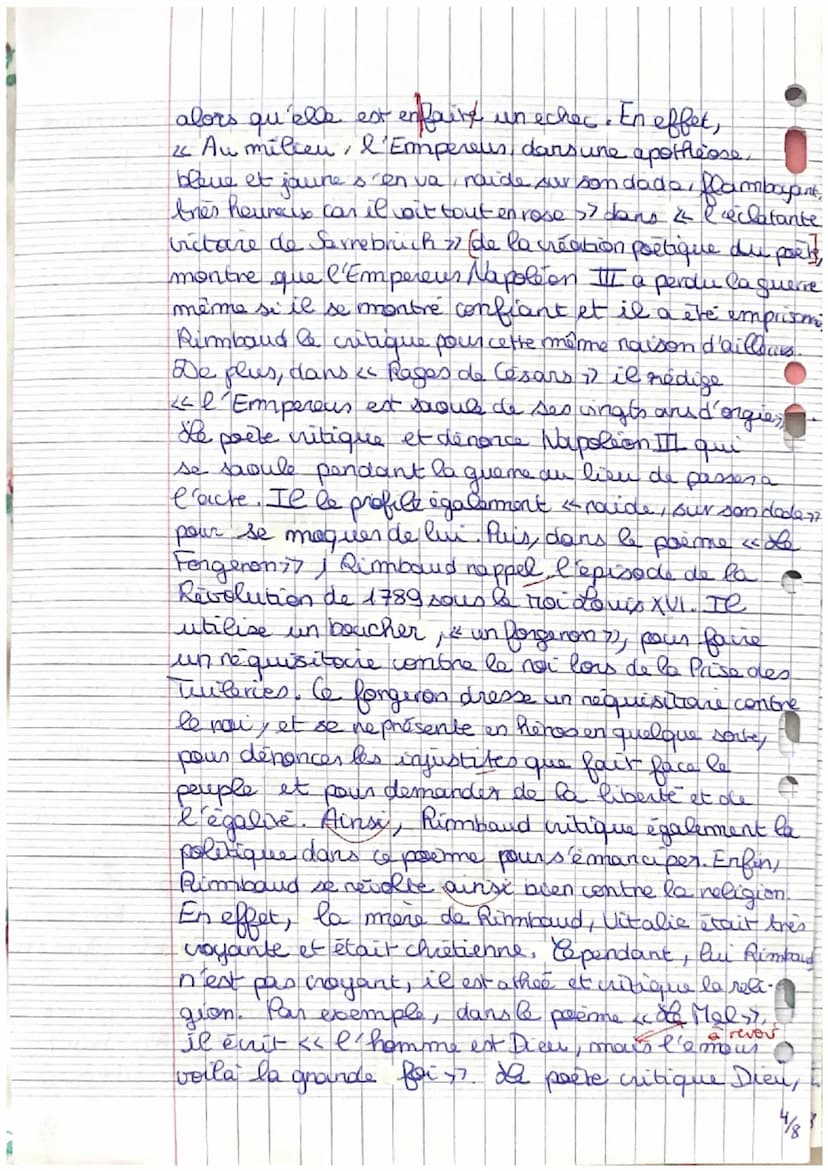 alors qu'elle est enfaint un echec. En effet,
« Au milieu, l'Empereur, dans une apothéose,
bleue et jaune s'en va, raide sur son dada, flamboyant,
très heureux car il voit tout en rose » dans « l'éclatante
victoire de Sarrebrück » [de la création poétique du poète],
montre que l'Empereur Napoléon III a perdu la guerre
même si il se montre confiant et il a été emprison
Rimbaud le critique pour cette même raison d'ailleurs.
De plus, dans « Rages de Césars » il rédige
« l'Empereur est saoul de ses vingts ans d'orgies »
Le poète critique et dénonce Napoléon III qui
se saoule pendant la guerre au lieu de passer à
l'acte. Il le profile également « raide, sur son dada »
pour se moquer de lui. Puis, dans le poème « Le
Forgeron », Rimbaud rappel l'épisode de la
Révolution de 1789 sous le roi Louis XVI. Il
utilise un boucher, « un forgeron », pour faire
un réquisitoire contre le roi lors de la Prise des
Tuileries. Ce forgeron dresse un réquisitoire contre
le roi, et se représente en héros en quelque sorte,
pour dénoncer les injustites que fait face le
peuple et pour demander de la liberté et de
l'égalité. Ainsi, Rimbaud critique également la
politique dans ce poème pour s'émanciper. Enfin,
Rimbaud se révolte ainsi bien contre la religion.
En effet, la mère de Rimbaud, Vitalie était très
croyante et était chrétienne. Cependant, lui Rimbaud
n'est pas croyant, il est athée et critique la reli-
gion. Par exemple, dans le poème « Le Mal »,
à revoir
il écrit « l'homme est Dieu, mais l'amour
voilà la grande foi ». Le poète critique Dieu,
4/8